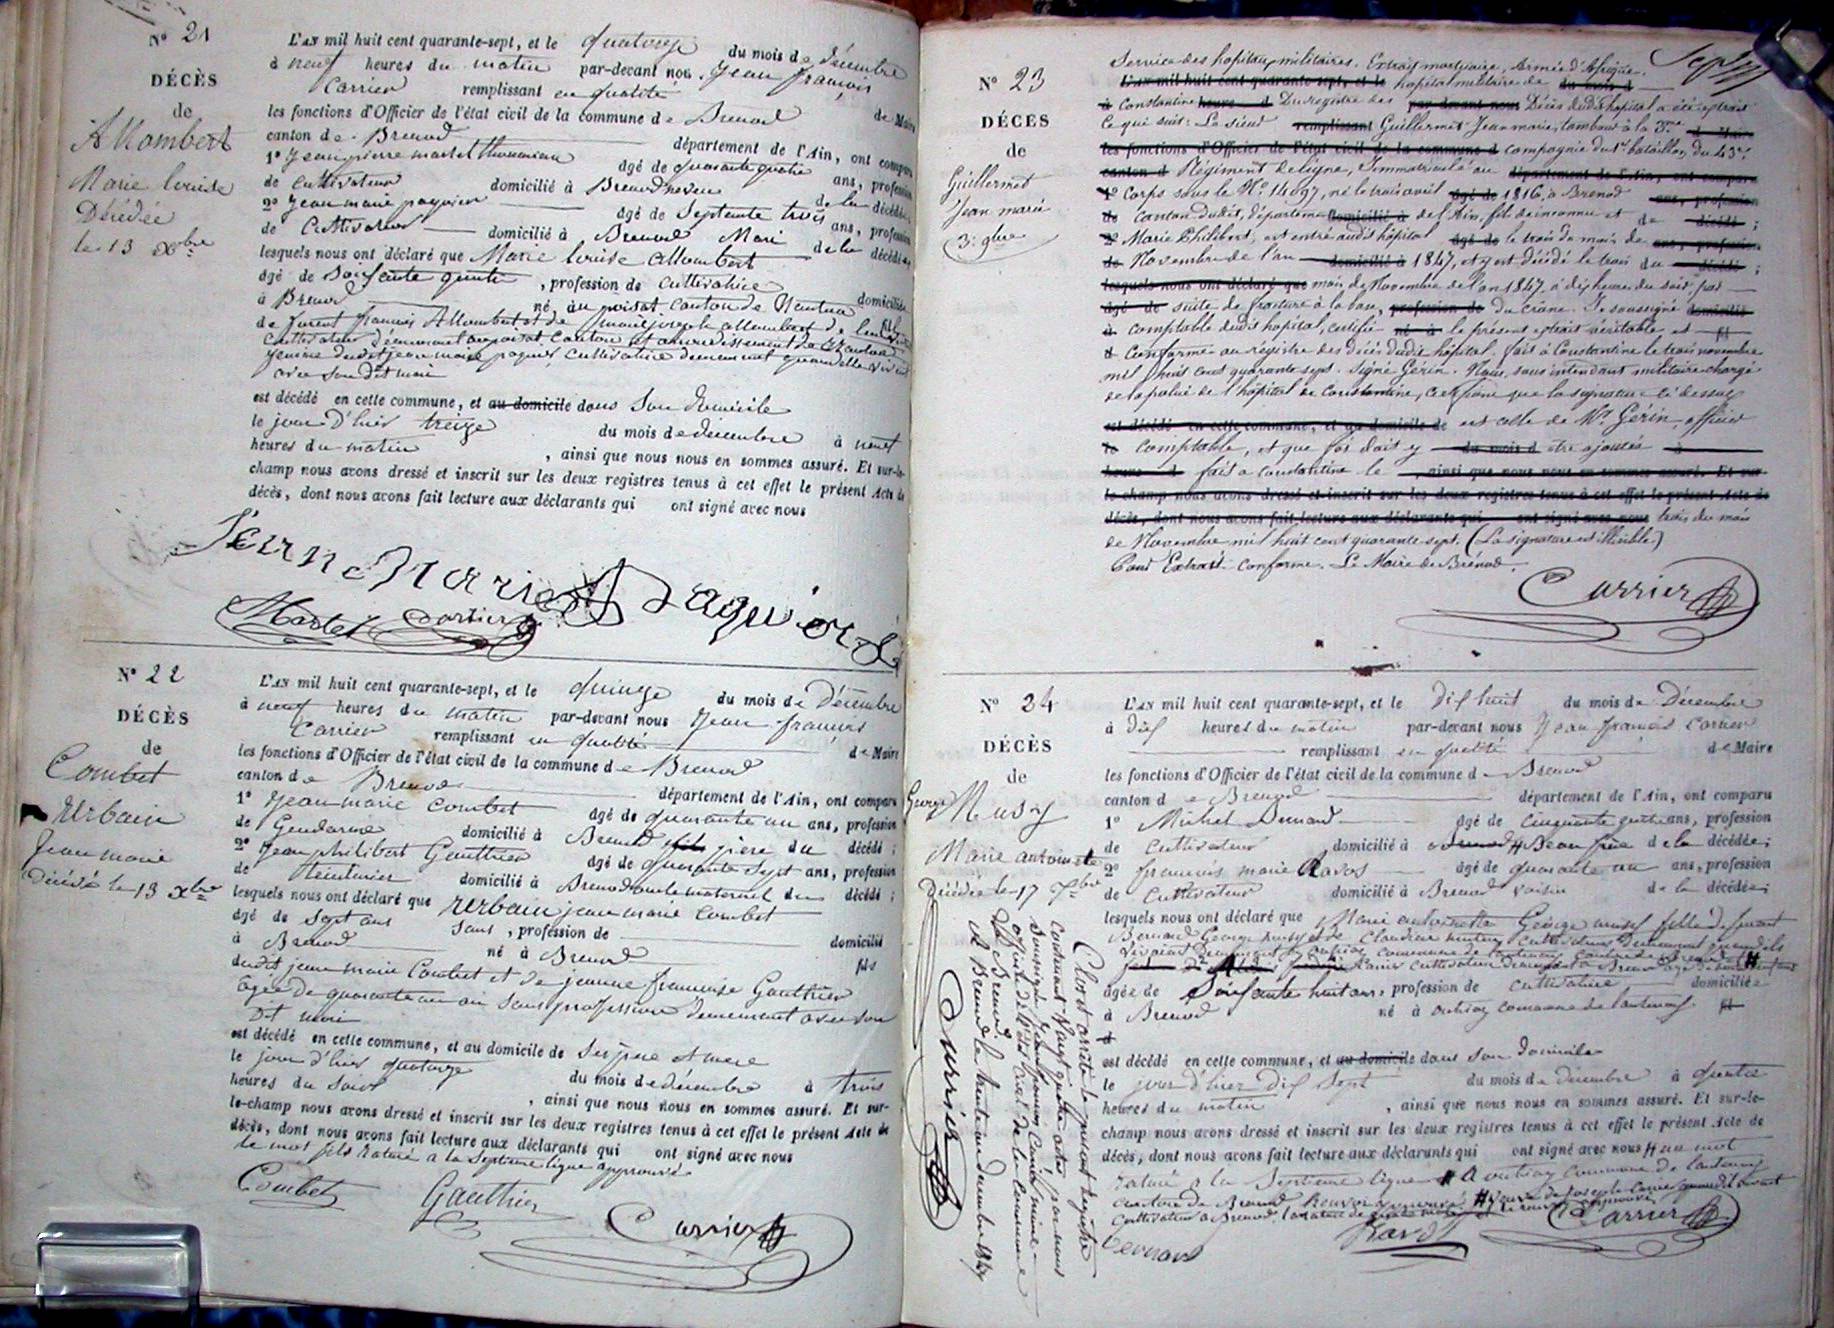 N° 21
DÉCÈS
de
Allombert
Marie louise
Décédée
le 13 Xbre
L'AN mil huit cent quarante-sept, et le quatorze du mois de décembre
à neuf heures du matin par-devant nous Jean françois
Carrier remplissant en qualité de Maire
les fonctions d'Officier de l'état civil de la commune de Brenod
canton de Brenod département de l'Ain, ont comparu
1° Jean pierre martel âgé de quarante quatre ans, profession
de Cultivateur domicilié à Brenod neveu de la décédée
2° Jean marie paquier âgé de Septente trois ans, profession
de Cultivateur domicilié à Brenod Mari de la décédée
lesquels nous ont déclaré que Marie louise allombert
âgé de soixente , profession de cultivatrice domiciliée
à Brenod né au poizat canton de Nantua
de furent françois Allombert et de marie josephe allombert de leur vivant
cultivateur demeurant au poizat canton et arrondissement de Nantua
femme dudit jean marie paquier cultivatrice demeurant quand elle vivait
avec son dit mari
est décédé en cette commune, et au domicile dans Son domicile
le jour d'hier treize du mois de décembre à neuf
heures du matin , ainsi que nous nous en sommes assuré. Et sur-le-
champ nous avons dressé et inscrit sur les deux registres tenus à cet effet le présent Acte de
décès, dont nous avons fait lecture aux déclarants qui ont signé avec nous
Jean Marie Paquier
Martel Carrier
N° 22
DÉCÈS
de
Combet
Urbain
Jean marie
Décédé le 13 Xbre
L'AN mil huit cent quarante-sept, et le quinze du mois de Décembre
à neuf heures du matin par-devant nous Jean françois
Carrier remplissant en qualité de Maire
les fonctions d'Officier de l'état civil de la commune de Brenod
canton de Brenod département de l'Ain, ont comparu
1° Jean marie Combet âgé de quarante un ans, profession
de Gendarme domicilié à Brenod fils pere du décédé ;
2° Jean philibert Gauthier âgé de quarante Sept ans, profession
de Teinturier domicilié à Brenod oncle maternel du décédé ;
lesquels nous ont déclaré que Urbain jean marie Combet
âgé de sept ans Sans , profession de domicilié
à Brenod né à Brenod fils
dudit jean marie Combet et de jeanne françoise Gauthier
agée de quarante un an sans profession demeurant avec son
Dit mari
est décédé en cette commune, et au domicile de Ses pere et mere
le jour d'hier quatorze du mois de décembre à trois
heures du Soir , ainsi que nous nous en sommes assuré. Et sur-
le-champ nous avons dressé et inscrit sur les deux registres tenus à cet effet le présent Acte de
décès, dont nous avons fait lecture aux déclarants qui ont signé avec nous
le mot fils raturé à la Septieme ligne approuvé
Combet Gauthier Carrier
N° 23
DÉCÈS
de
Guillermet
Jean marie
3 9bre
Service des hopitaux militaires. Extrait mortuaire, Armée d'Afrique.
L'AN mil huit cent quarante-sept, et le hopital militaire de du mois d
à Constantine heure d Du registre des par-devant nous Décès dudit hopital a été extrait
ce qui suit : Le sieur remplissant Guillermet Jean marie, tambour à la 3me de Maire
les fonctions d'Officier de l'état civil de la commune d compagnie du 1er bataillon du 43e
canton d Régiment de ligne, Immatriculé au département de l'Ain, ont comparu
1° Corps sous le N° 14,097, né le trois avril âgé de 1816, à Brenod ans, profession
de Canton dudit, département domicilié à de l'Ain, fils de inconnu et de décédé ;
2° Marie Philibert, est entré audit hôpital âgé de le trois du mois de ans, profession
de Novembre de l'an domicilié à 1847, et y est décédé le trois du décédé ;
lesquels nous ont déclaré que mois de Novembre de l'an 1847 à dix heures du soir, par
âgé de suite de fracture à la base, profession de du crâne. Je soussigné domicilié
à comptable dudit hopital, certifie né à le présent extrait véritable et fil
d Conforme au régistre des décès dudit hôpital. fait à Constantine le trois novembre
mil huit cent quarante sept. Signé Gérin. Nous, sous intendant militaire chargé
de la police de l'hôpital de Constantine, certifions que la signature ci dessus
est décédé en cette commune, et au domicile de est celle de Mr Gérin, officier
le Comptable, et que foi doit y du mois d être ajoutée à
heure d fait à Constantine le , ainsi que nous nous en sommes assuré. Et sur-
le-champ nous avons dressé et inscrit sur les deux registres tenus à cet effet le présent Acte de
décès, dont nous avons fait lecture aux déclarants qui ont signé avec nous trois du mois
de Novembre mil huit cent quarante sept. (La signature est illisible)
Pour Extrait conforme. Le Maire de Brénod.
Carrier
N° 24
DÉCÈS
de
George Musy
Marie antoinette
Décédée le 17 Xbre
L'AN mil huit cent quarante-sept, et le Dix huit du mois de Décembre
à dix heures du matin par-devant nous Jean françois Carrier
remplissant en qualité de Maire
les fonctions d'Officier de l'état civil de la commune de Brenod
canton de Brenod département de l'Ain, ont comparu
1° Michel Bernard âgé de cinquante ans, profession
de Cultivateur domicilié à Brenod Beau frere de la décédée ;
2° françois marie Ravot âgé de quarante un ans, profession
de Cultivateur domicilié à Brenod voisin de la décédée ;
lesquels nous ont déclaré que Marie antoinette George musy fille de furent
Bernard George musy et de Claudine cultivateurs Demeurant quand ils
vivaient
âgée de Soixante huit ans, profession de cultivatrice domiciliée
à Brenod né à outriaz commune de lantenay fil
d
est décédé en cette commune, et au domicile dans son domicile
le jour d'hier dix sept du mois de décembre à quatre
heures du matin , ainsi que nous nous en sommes assuré. Et sur-le-
champ nous avons dressé et inscrit sur les deux registres tenus à cet effet le présent Acte de
décès, dont nous avons fait lecture aux déclarants qui ont signé avec nous # un mot
raturé à la Septieme ligne # A outriaz commune de lantenay
canton de Brenod Renvoi approuvé # veuve de joseph Carrier quand il vivait
cultivateur a Brenod
Bernard Ravot Carrier
Clos et arrêté le présent registre
contenant Vingt quatre actes par nous
soussigné Jean françois Carrier maire
officier de l'état civil de la Commune
de Brenod
A Brenod le trente un decembre 1847
Carrier